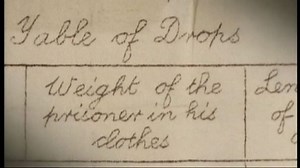 Table of Drops
Weight of the
prisoner in his
clothes
Len
of